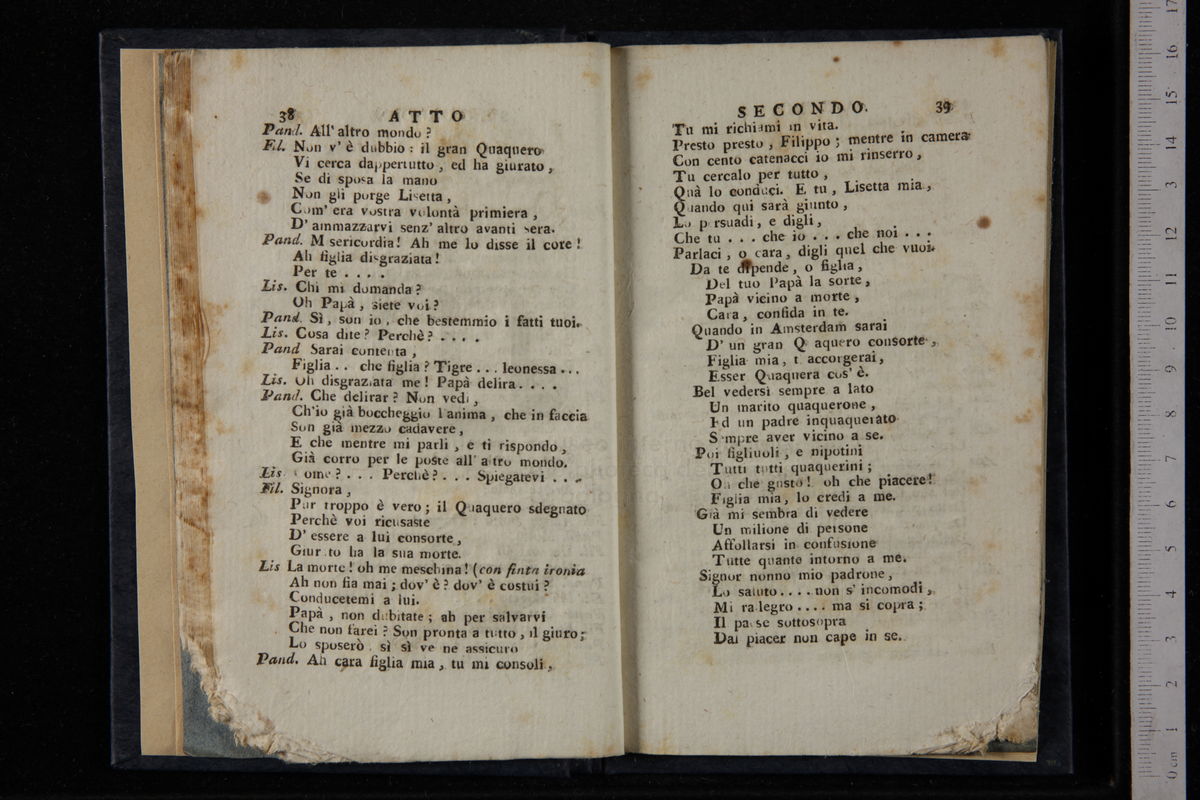 38 ATTO
Pand. All' altro mondo ?
Fil. Non v' è dubbio : il gran Quaquero
Vi cerca dappertutto , ed ha giurato ,
Se di sposa la mano
Non gli porge Lisetta ,
Com' era vostra volontà primiera ,
D' ammazzarvi senz' altro avanti sera.
Pand. M sericordia! Ah me lo disse il core !
Ah figlia disgraziata !
Per te . . . .
Lis. Chi mi domanda ?
Oh Papà , siete voi ?
Pand. Sì, son io , che bestemmio i fatti tuoi.
Lis. Cosa dite ? Perchè ? . . . .
Pand Sarai contenta ,
Figlia . . che figlia ? Tigre . . . leonessa . . .
Lis. Oh disgraziata me ! Papà delira. . . .
Pand. Che delirar ? Non vedi ,
Ch'io già boccheggio l'anima , che in faccia
Son già mezzo cadavere ,
E che mentre mi parli , e ti rispondo ,
Già corro per le poste all' altro mondo.
Lis. Come ? . . . Perchè ? . . . Spiegatevi . . .
Fil. Signora ,
Pur troppo è vero ; il Quaquero sdegnato
Perchè voi ricusaste
D' essere a lui consorte ,
Giurato ha la sua morte.
Lis La morte ! oh me meschina ! (con finta ironia
Ah non fia mai ; dov' è ? dov' è costui ?
Conducetemi a lui.
Papà , non dubitate ; ah per salvarvi
Che non farei ? Son pronta a tutto , il giuro ;
Lo sposerò , sì sì ve ne assicuro
Pand. Ah cara figlia mia , tu mi consoli ,
SECONDO. 39
Tu mi richiami in vita.
Presto presto , Filippo ; mentre in camera
Con cento catenacci io mi rinserro ,
Tu cercalo per tutto ,
Quà lo conduci. E tu , Lisetta mia ,
Quando qui sarà giunto ,
Lo persuadi , e digli ,
Che tu . . . che io . . . che noi . . .
Parlaci , o cara , digli quel che vuoi.
Da te dipende , o figlia ,
Del tuo Papà la sorte ,
Papà vicino a morte ,
Cara , confida in te.
Quando in Amsterdam sarai
D' un gran Quaquero consorte ,
Figlia mia , t' accorgerai ,
Esser Quaquera cos' è.
Bel vedersi sempre a lato
Un marito quaquerone ,
Ed un padre inquaquerato
Sempre aver vicino a se.
Poi figliuoli , e nipotini
Tutti tutti quaquerini ;
Oh che gusto ! oh che piacere !
Figlia mia , lo credi a me.
Già mi sembra di vedere
Un milione di persone
Affollarsi in confusione
Tutte quante intorno a me.
Signor nonno mio padrone ,
Lo saluto . . . . non s' incomodi ,
Mi rallegro . . . . ma si copra ;
Il paese sottosopra
Dal piacer non cape in se.
0 cm 1 2 3 4 5 6 7 8 9 10 11 12 13 14 15 16 17